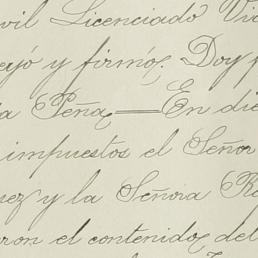 vil Licenciado Vi
eyó y firmó. Doy
la Peña — En die
impuestos el Señor
ez y la Señora R
ron el contenido, del